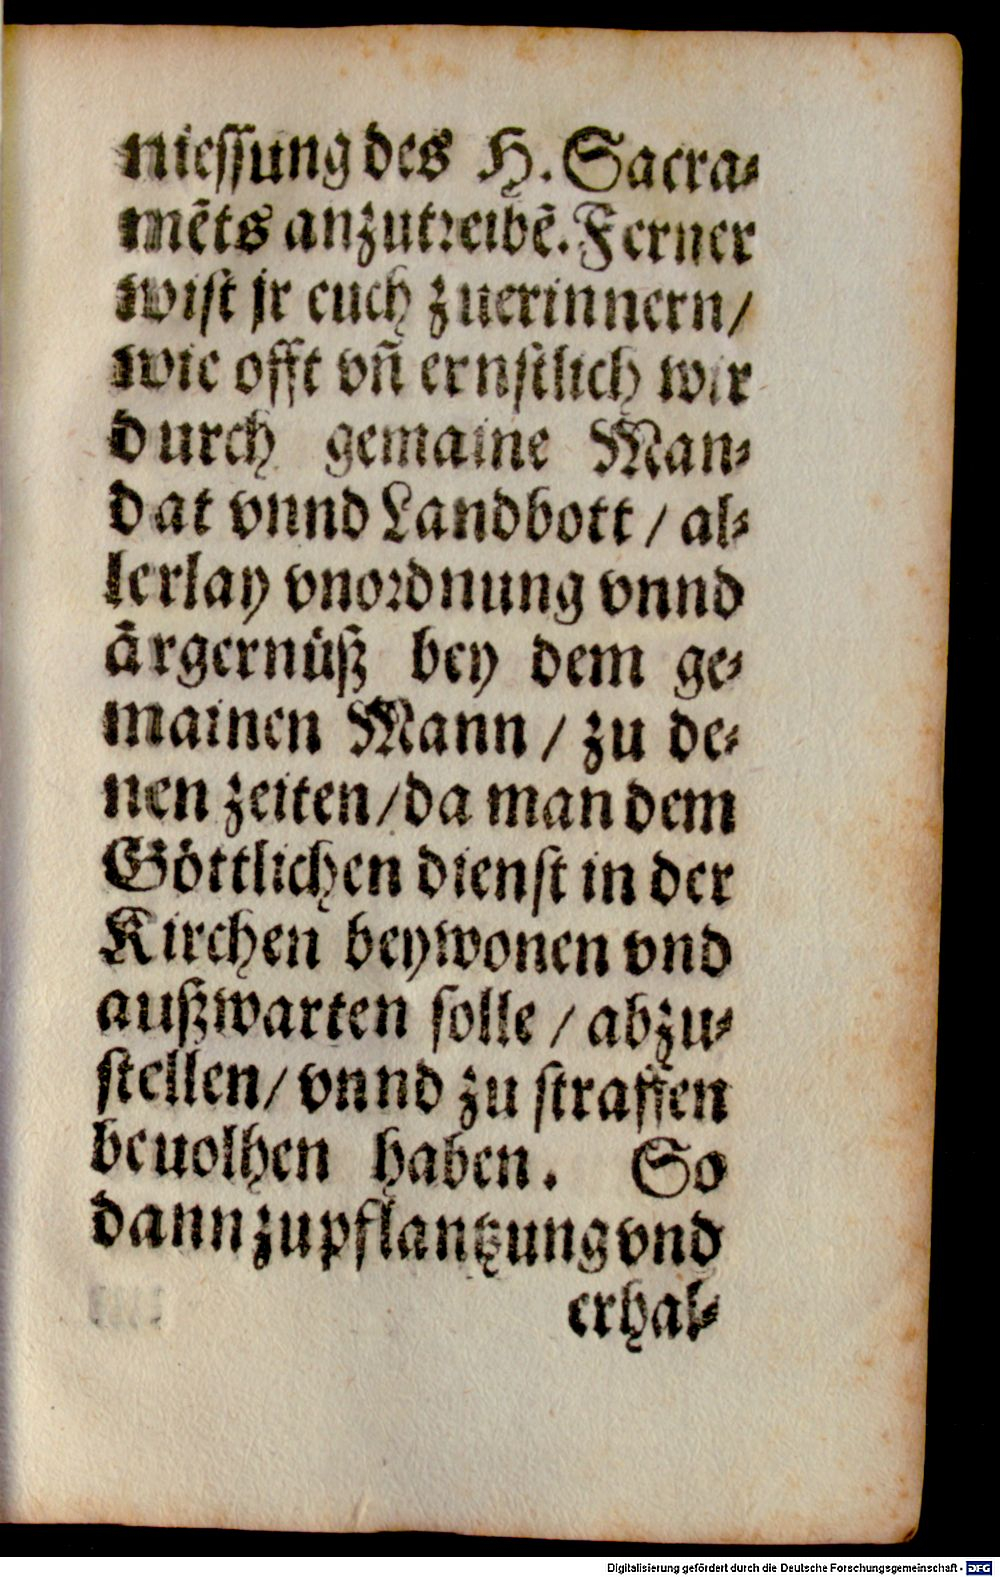 niessung des H. Sacra-
mēts anzutreibē. Ferner
wist jr euch zuerinnern/
wie offt vn̄ ernstlich wir
durch gemaine Man-
dat vnnd Landbott / al-
lerlay vnordnung vnnd
ärgernüß bey dem ge-
mainen Mann / zu de-
nen zeiten/da man dem
Göttlichen dienst in der
Kirchen beywonen vnd
außwarten solle / abzu-
stellen/ vnnd zu straffen
beuolhen haben. So
dann zu pflantzung vnd
erhal-
Digitalisierung gefördert durch die Deutsche Forschungsgemeinschaft - DFG